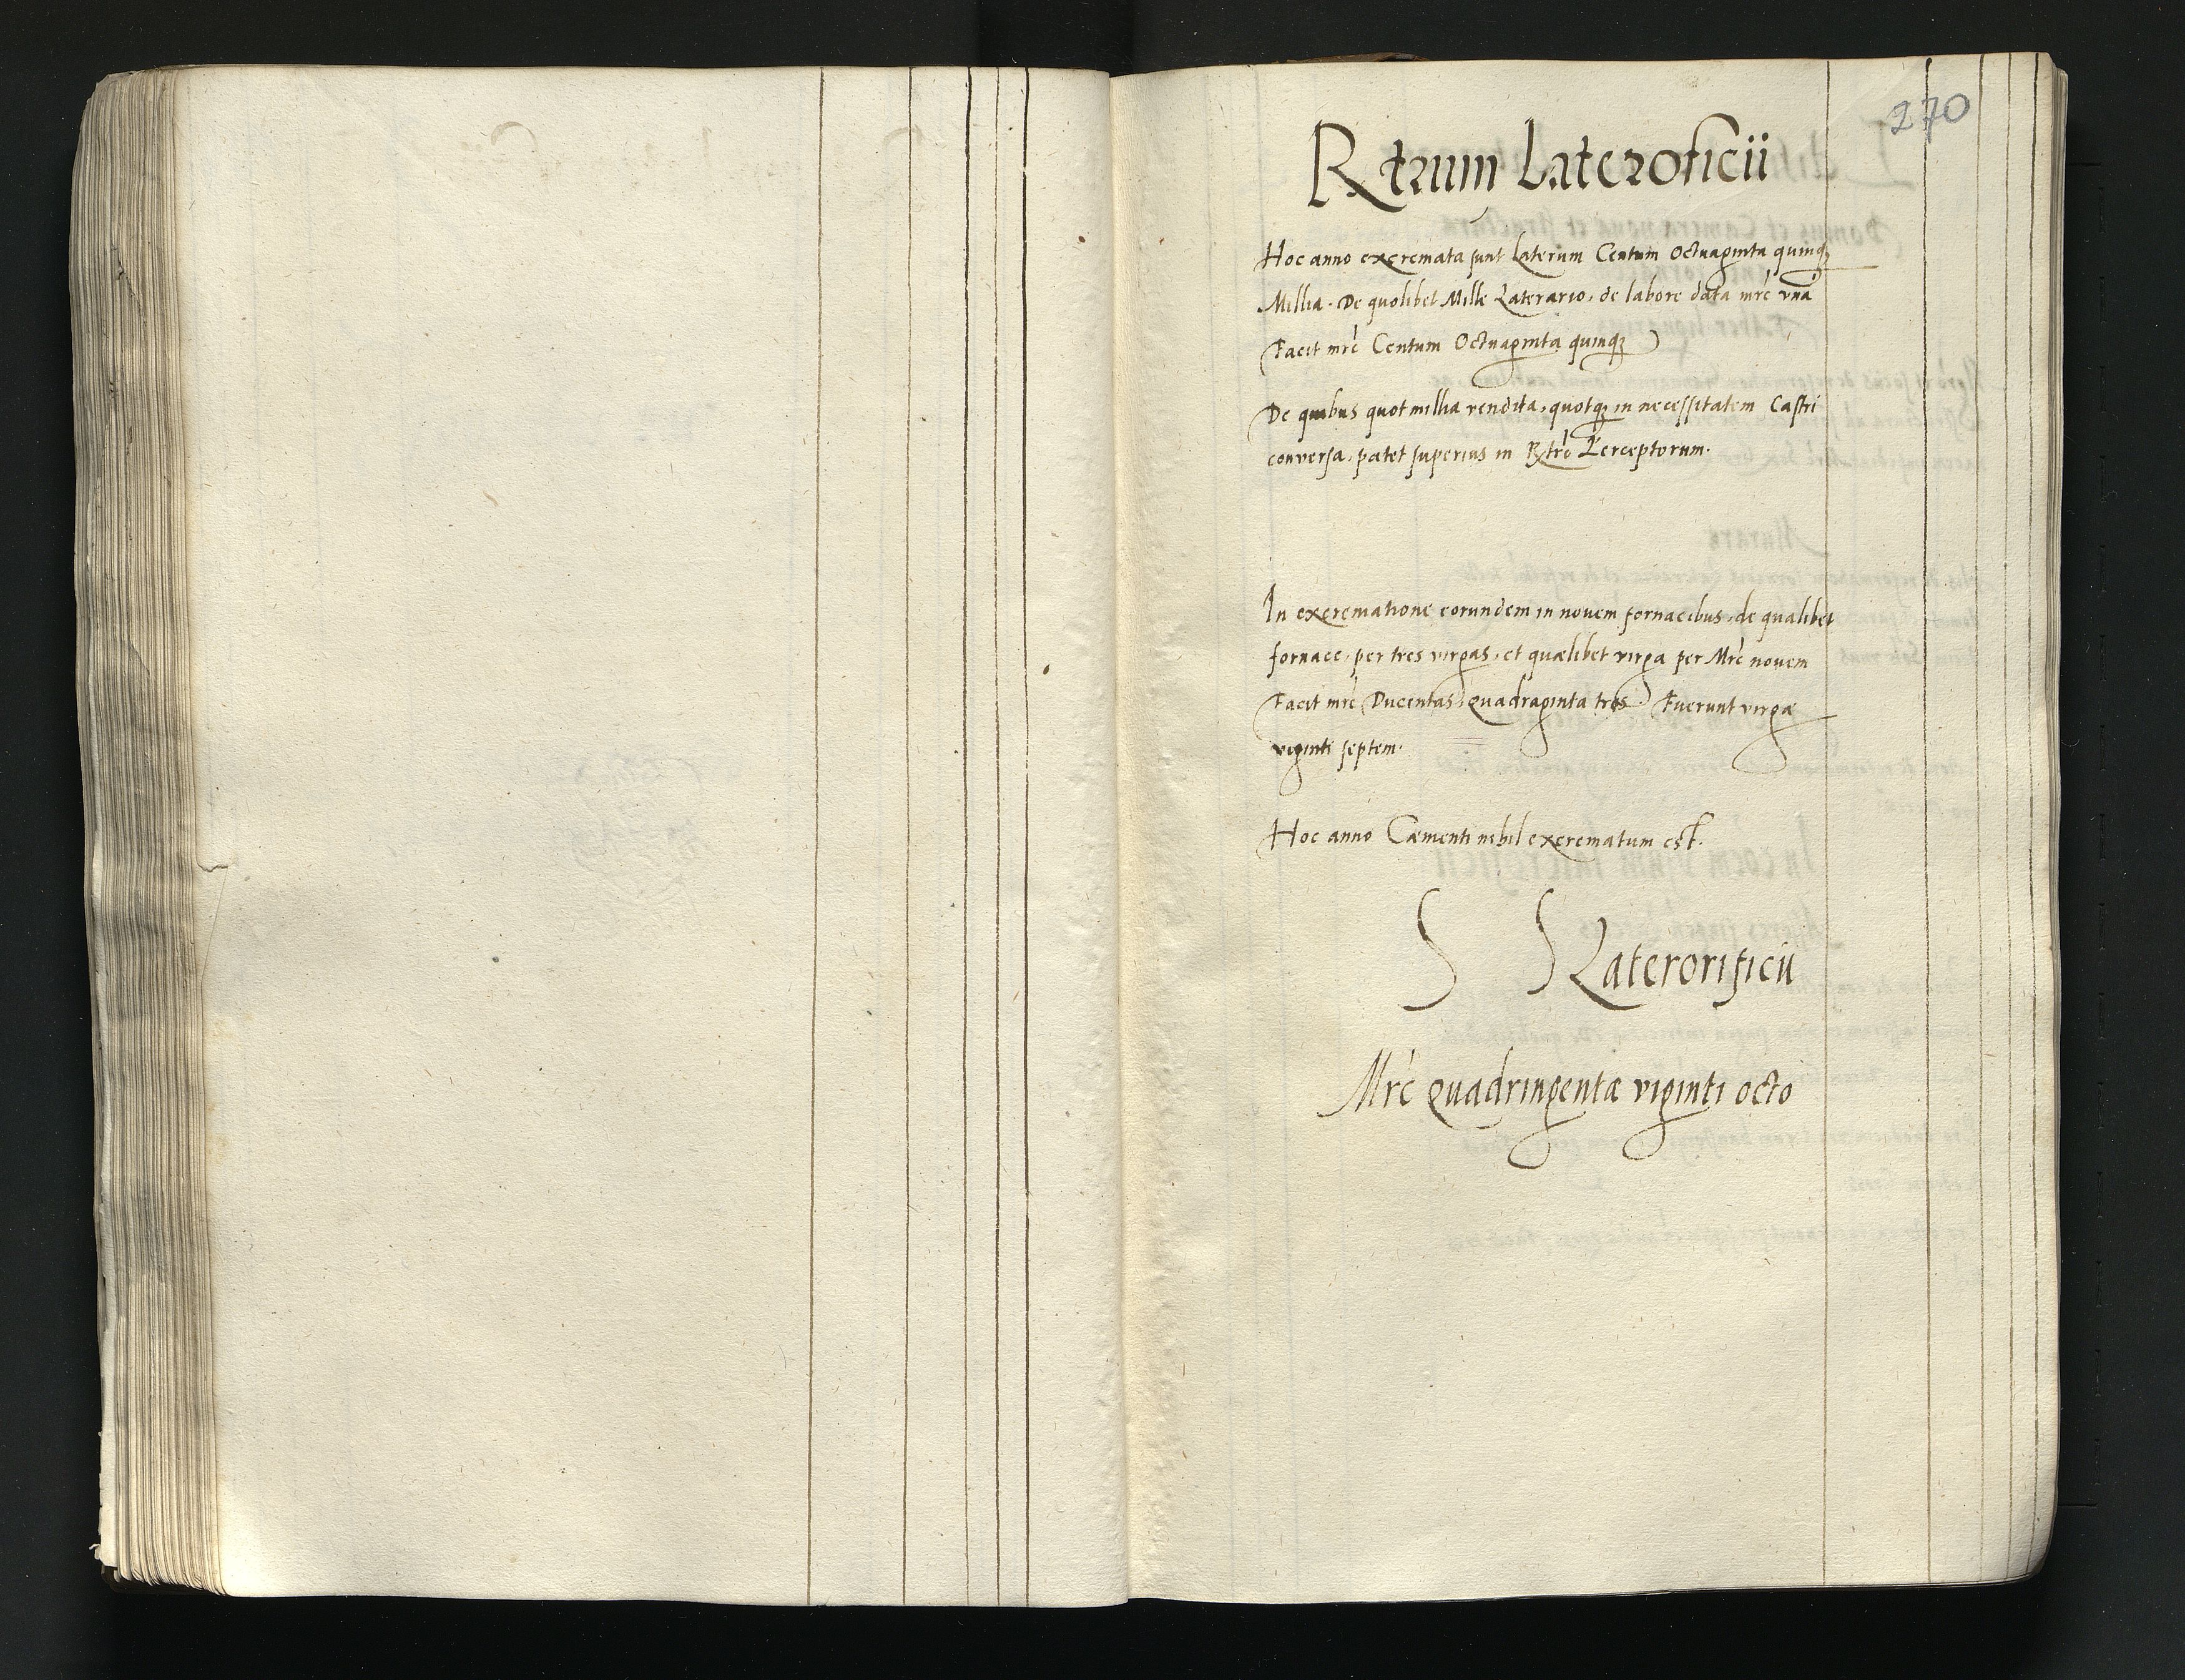 270
Rtrum Lateroficii
Hoc anno excremata sunt Laterum Centum Octuaginta quinq;
Millia. De quolibet Mille Laterario, de labore data mrc vna
Facit mrc Centum Octuaginta quinq;
De quibus quot millia vendita, quotq; in necessitatem Castri
conversa, patet superius in Rtro Perceptorum.
In excrematione eorundem in novem fornacibus, de qualibet
fornace, per tres virgas, et quælibet virga per Mrc novem
Facit mrc Ducentas Quadraginta tres Fuerunt virgæ
viginti septem.
Hoc anno Cæmenti nihil excrematum est.
S S Laterorificii
Mrc Quadringentæ viginti octo